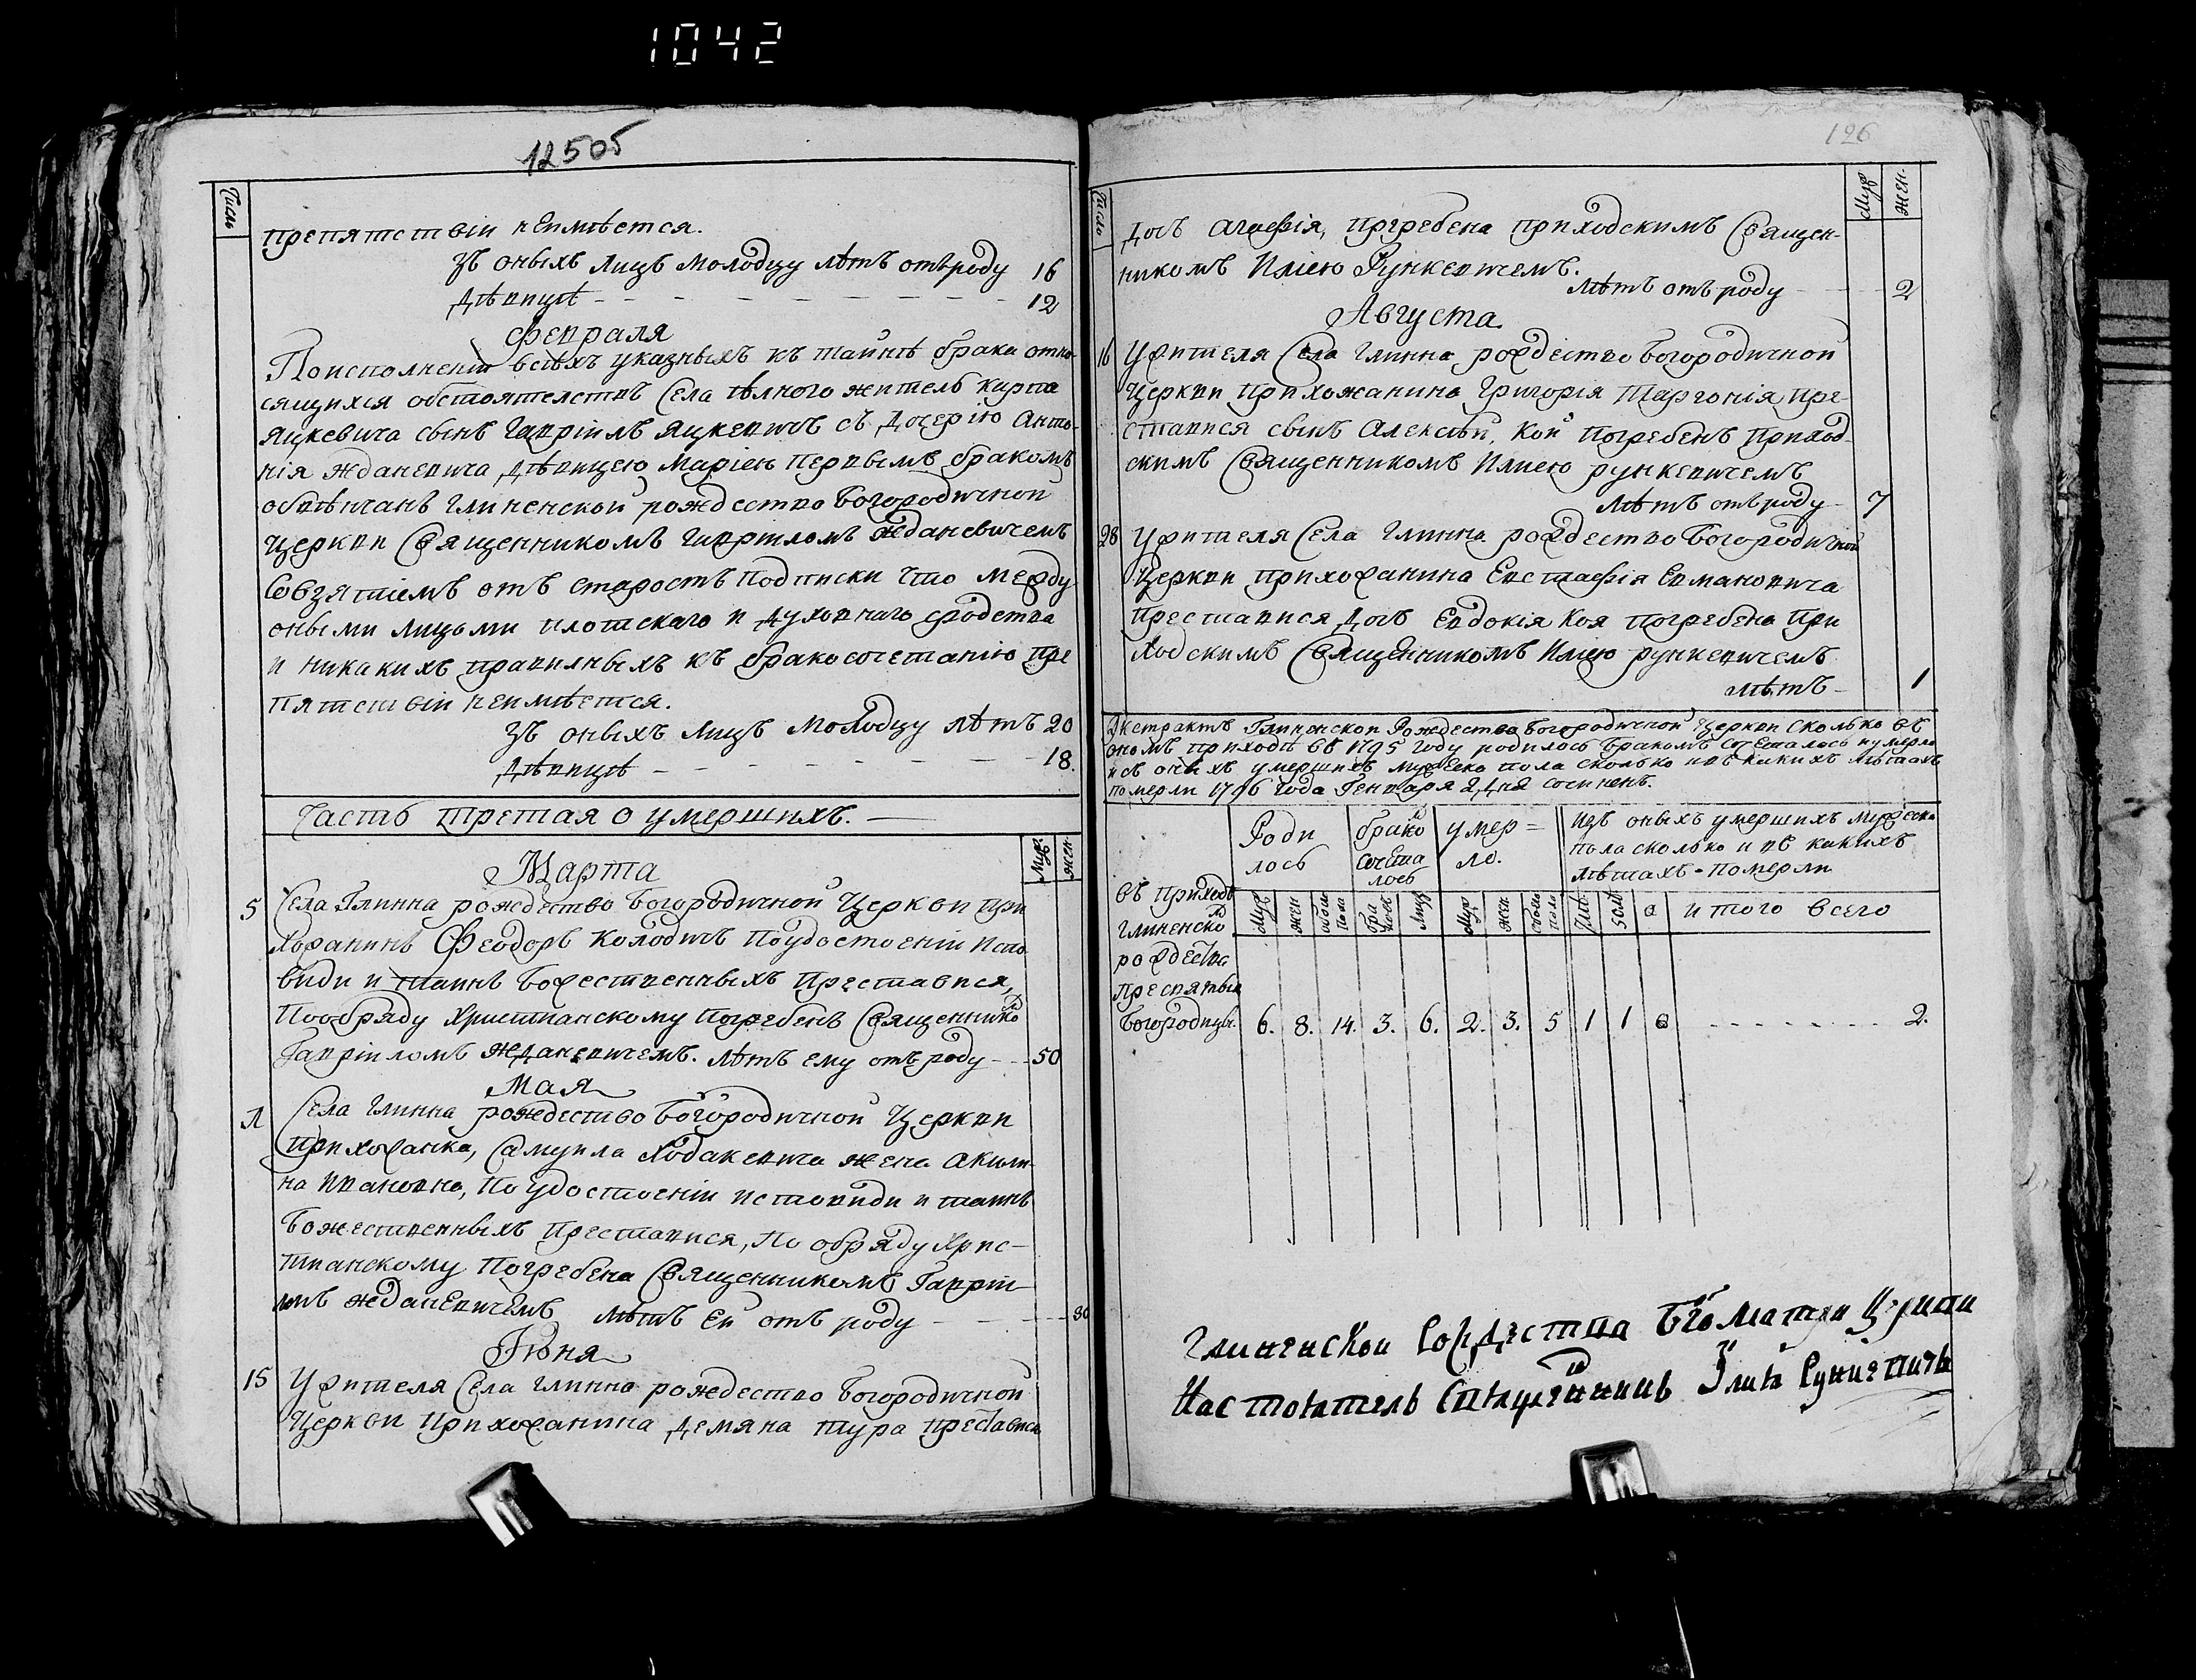 1042
12505
Число
препятствіи неимѣется.
Зъ оныхъ лицъ молодцу лѣтъ отъ роду 16
Дѣвицѣ - - - - - - - - 12
Февраля
По исполненіи всѣхъ указныхъ къ тайнѣ брака отно-
сящихся обстоятелствъ Села
житель Карпа
Яцкевича сынъ Гавріилъ Яцкевичъ съ дочерію Анто-
нія Жданевича дѣвицею Маріею первымъ бракомъ
обвѣнчанъ Глиненской рождество Богородичной
Церкви Священникомъ Гавріиломъ Жданевичемъ
Совзятіемъ отъ старостъ подписки что между
оными лицами плотскаго и духовнаго сродства
и никакихъ правилныхъ къ бракосочетанію пре
пятствіи неимѣется.
Зъ оныхъ лицъ молодцу лѣтъ 20
Дѣвицѣ - - - - - - - - 18.
Часть третая о умершихъ.
Муж. жен.
Марта
5 Села Глинна рождество Богородичной Церкви при
хожанинъ Феодоръ Колодичъ по удостоеніи испо
види и таинъ Божественныхъ преставися,
По обряду Христианскому погребенъ Священнико м
Гавріиломъ Жданевичемъ. лѣтъ ему отъ роду - - 50
Мая
Л Села Глинна рождество Богородичной Церкви
прихожанка, Самуила Ходакевича жена Акили-
на Ивановна, по удостоеніи исповиди и таинъ
Божественныхъ преставися, по обряду Хрис-
тианскому погребена Священникомъ Гавріи-
ломъ Жданевичемъ лѣтъ ей отъ роду - - - - 30
Іюня
15 У жителя Села Глинна рождество Богородичной
Церкви прихожанина Демяна Тура преставися
126
Число
Муж жен.
дочъ Агафія, погребена приходскимъ Священ-
никомъ Иліею Рункевичемъ.
лѣтъ отъ роду - - 2
Августа
16 У жителя Села Глинна рождество Богородичной
Церкви прихожанина Григорія
пре-
ставися сынъ Алексѣй, кой погребенъ приход-
скимъ Священникомъ Илиею Рункевичемъ
лѣтъ отъ роду - 7
28 У жителя Села Глинна рождество Богородичной
Церкви прихожанина Евстафія Ермановича
преставися дочъ Евдокія коя погребена при
ходскимъ Священникомъ Иліею Рункевичемъ
лѣтъ - 1
Экстрактъ Глиненской Рождество Богородичной Церкви сколько въ
ономъ приходѣ въ 1795 году родилось бракомъ сочеталось и умерло
и съ оныхъ умершихъ мужеска пола сколько и въ какихъ лѣтахъ
померли 1796 года Генваря 2 дня сочиненъ.
Роди
лось
брако м
сочета
лось
умер=
ло.
Изъ оныхъ умершихъ мужеска
пола сколько и въ какихъ
лѣтахъ - померли
Муж жен обоего пола бра ковъ лиц Муж жен обоего пола 7 лѣ 50 лѣ 0 итого всего
въ приходѣ
Глиненско й
рождества
Пресвятыя
Богородицы. 6. 8. 14. 3. 6. 2. 3. 5 1 1 0 - - - - - - - 2.
Глиненской Рождества Бгоматри Церкви
Настоятель Священникъ Iлия Рункевичъ